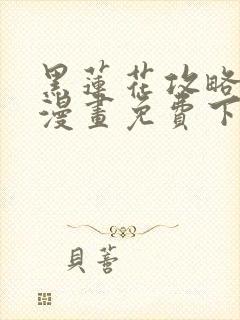 黑蓮花攻略
漫畫免費下
貝蕾